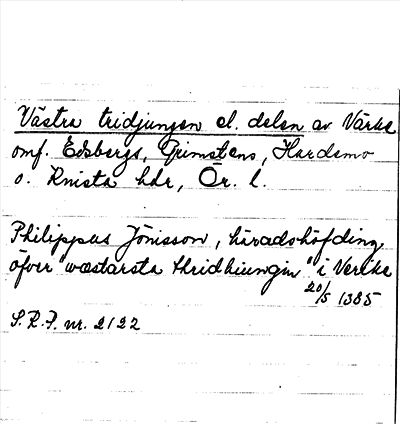 Västra tridjungen el. delen av Värke
omf. Edsbergs, Grimstens, Hardemo
o. Knista hdr, Ör. l.
Philippus Jönisson, häradshöfding
öfver "wæstarsta thridhiungin" i Verike
20/5 1385
S.R.P. nr. 2122